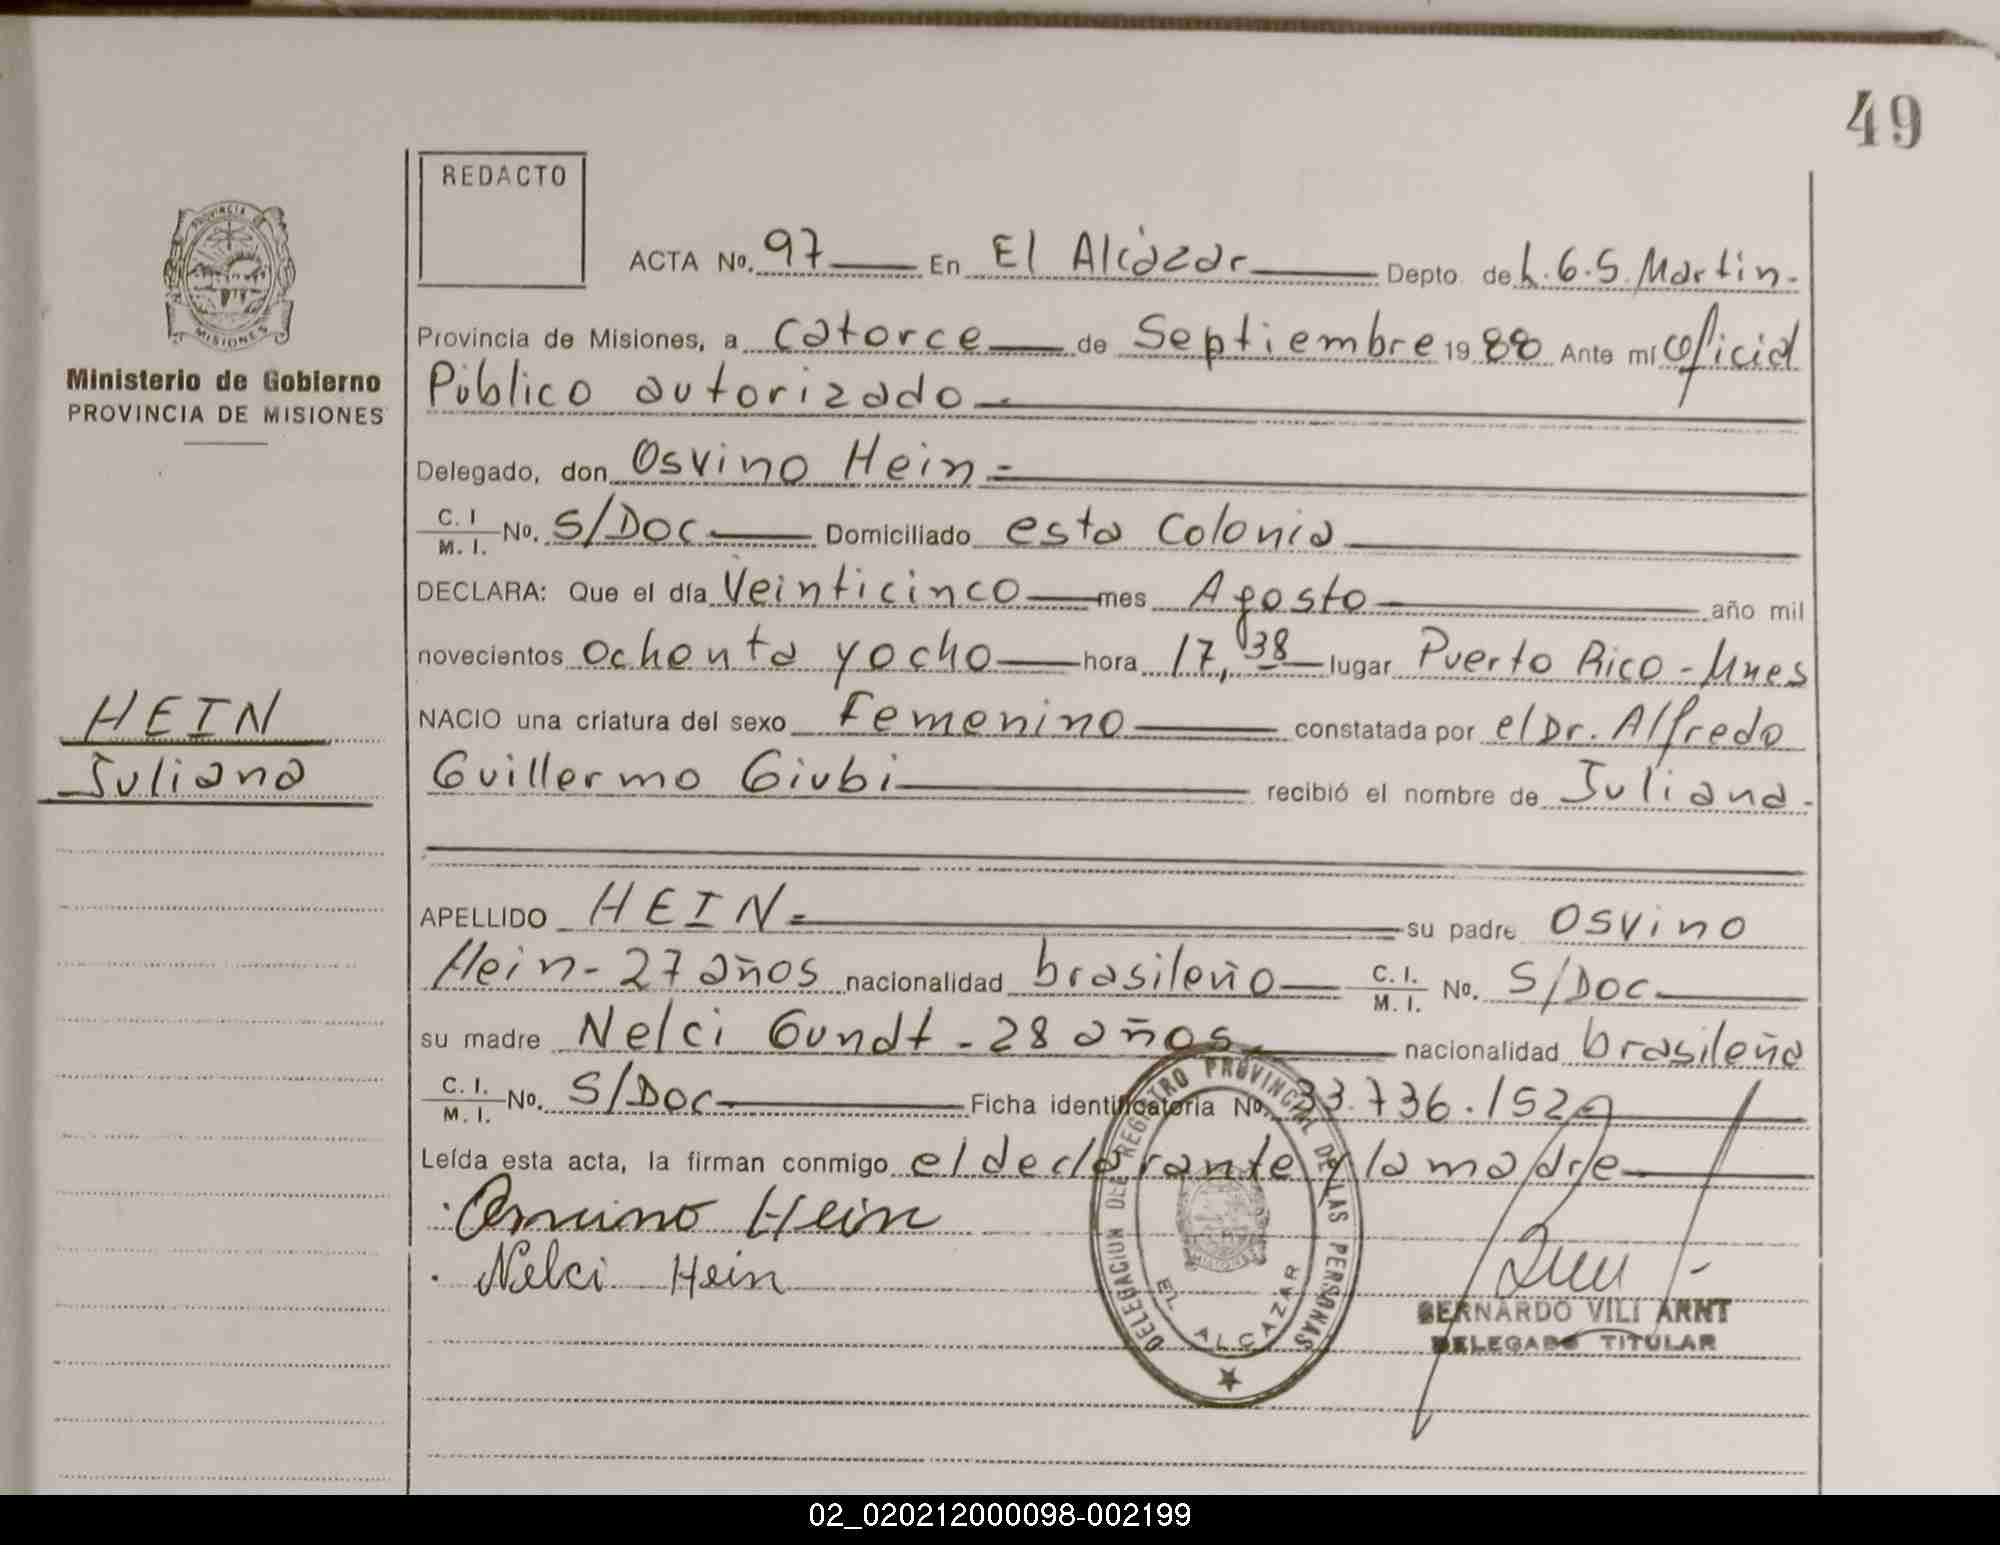 49
REDACTO
ACTA No. 97 En El Alcázar Depto de L.G.S. Martin.
Provincia de Misiones, a catorce de Septiembre 1988 Ante mí oficial
Público autorizado
Delegado, don Osvino Hein
C. I. / M. I. No. S/Doc Domiciliado esta Colonia
DECLARA: Que el día Veinticinco mes Agosto año mil
novecientos ochenta y ocho hora 17,38 lugar Puerto Rico - Mnes
NACIO una criatura del sexo Femenino constatada por el Dr. Alfredo
Guillermo Giubi recibió el nombre de Juliana.
APELLIDO HEIN su padre Osvino
Hein - 27 años nacionalidad brasileño C. I. / M. I. No. S/Doc
su madre Nelci Gundt - 28 años nacionalidad brasileña
C. I. / M. I. No. S/Doc Ficha identificatoria No. 33.736.152
Leída esta acta, la firman conmigo el declarante y la madre
Hein
Nelci Hein
BERNARDO VILI ARNT
DELEGADO TITULAR
DELEGACION DEL REGISTRO PROVINCIAL DE LAS PERSONAS
EL ALCAZAR
PROVINCIA DE
MISIONES
Ministerio de Gobierno
PROVINCIA DE MISIONES
HEIN
Juliana
02_020212000098-002199